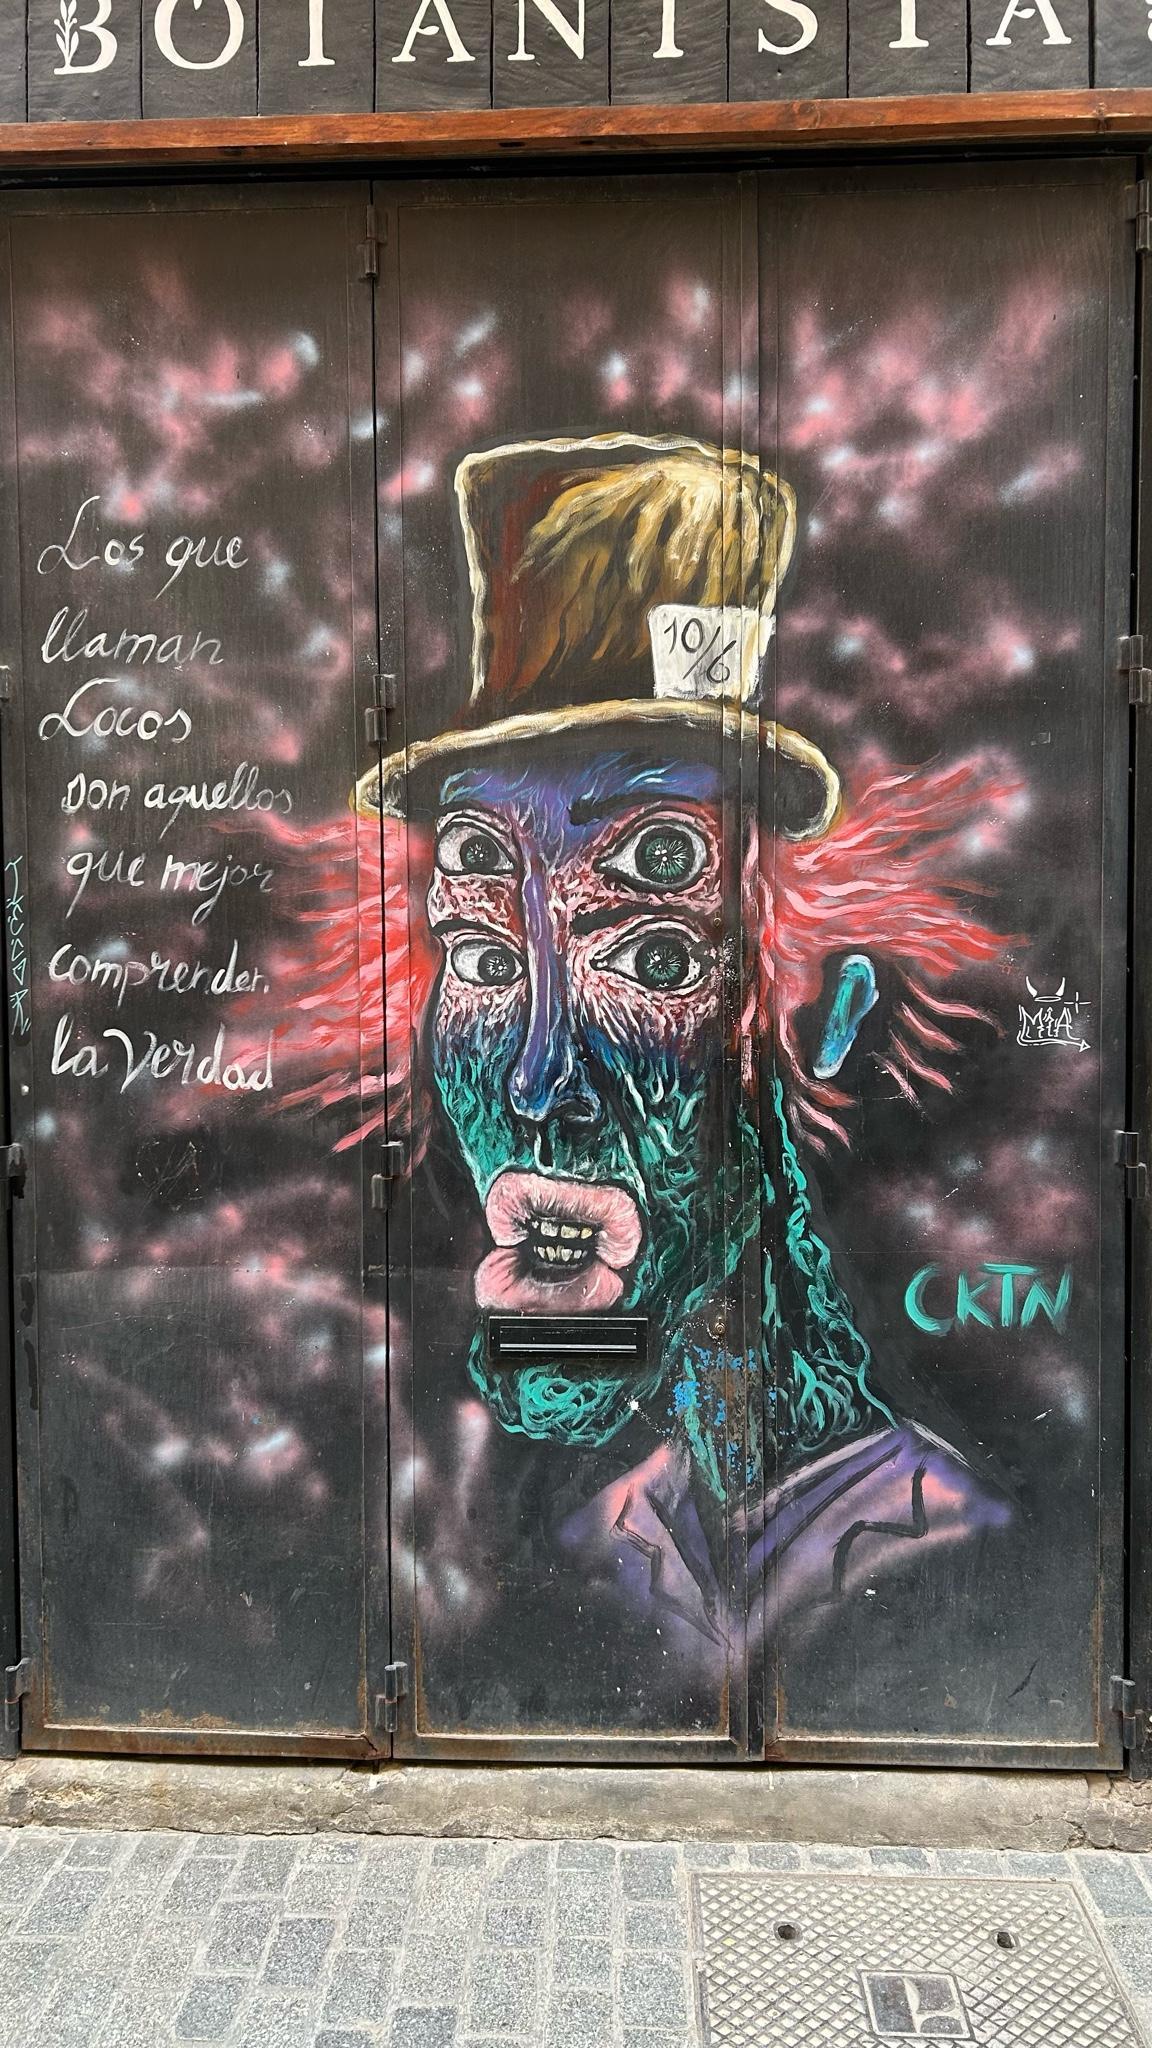 BOTANISTA
10/6
Los que
llaman
Locos
son aquellos
que mejor
comprenden
la Verdad
MIA
CKTN